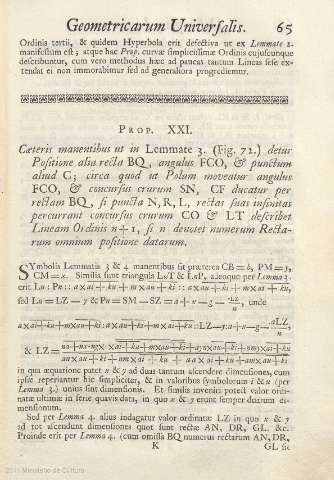 Geometricarum Universalis. 65
Ordinis tertii, & quidem Hyperbola erit defectiva ut ex Lemmate 2.
manifestum est; atque hac Prop. curvæ simplicissimæ Ordinis cujuscunque
describuntur, cum vero methodus hæc ad paucas tantum Lineas sese ex-
tendat ei non immorabimur sed ad generaliora progrediemur.
PROP. XXI.
Cæteris manentibus ut in Lemmate 3. (Fig. 72.) detur
Positione alia recta BQ, angulus FCO, & punctum
aliud C; circa quod ut Polum moveatur angulus
FCO, & concursus crurum SN, CF ducatur per
rectam BQ, si puncta N, R, L, rectas suas infinitas
percurrant concursus crurum CO & LT describet
Lineam Ordinis n+1, si n denotet numerum Recta-
rum omnium positione datarum.
SYmbolis Lemmatis 3 & 4 manentibus sit præterea CB=b, PM=
CM=x. Similia sunt triangula & adeoque per Lemma 3.
erit
sed
& LZ=
in qua æquatione patet x & y ad duas tantum ascendere dimensiones, cum
ipsæ reperiantur hic simpliciter, & in valoribus symbolorum i & u (per
Lemma 3.) unius sint dimensionis. Et similis inveniri potest valor ordi-
natæ ultimæ in serie quavis data, in quo x & y erunt semper duarum di-
mensionum.
Sed per Lemma 4. alius indagatur valor ordinatæ LZ in quo x & y
ad tot ascendunt dimensiones quot sunt rectæ AN, DR, GL, &c.
Proinde erit per Lemma 4. (cum omissa BQ numerus rectarum AN, DR,
K GL sit
2011 Ministerio de Cultura